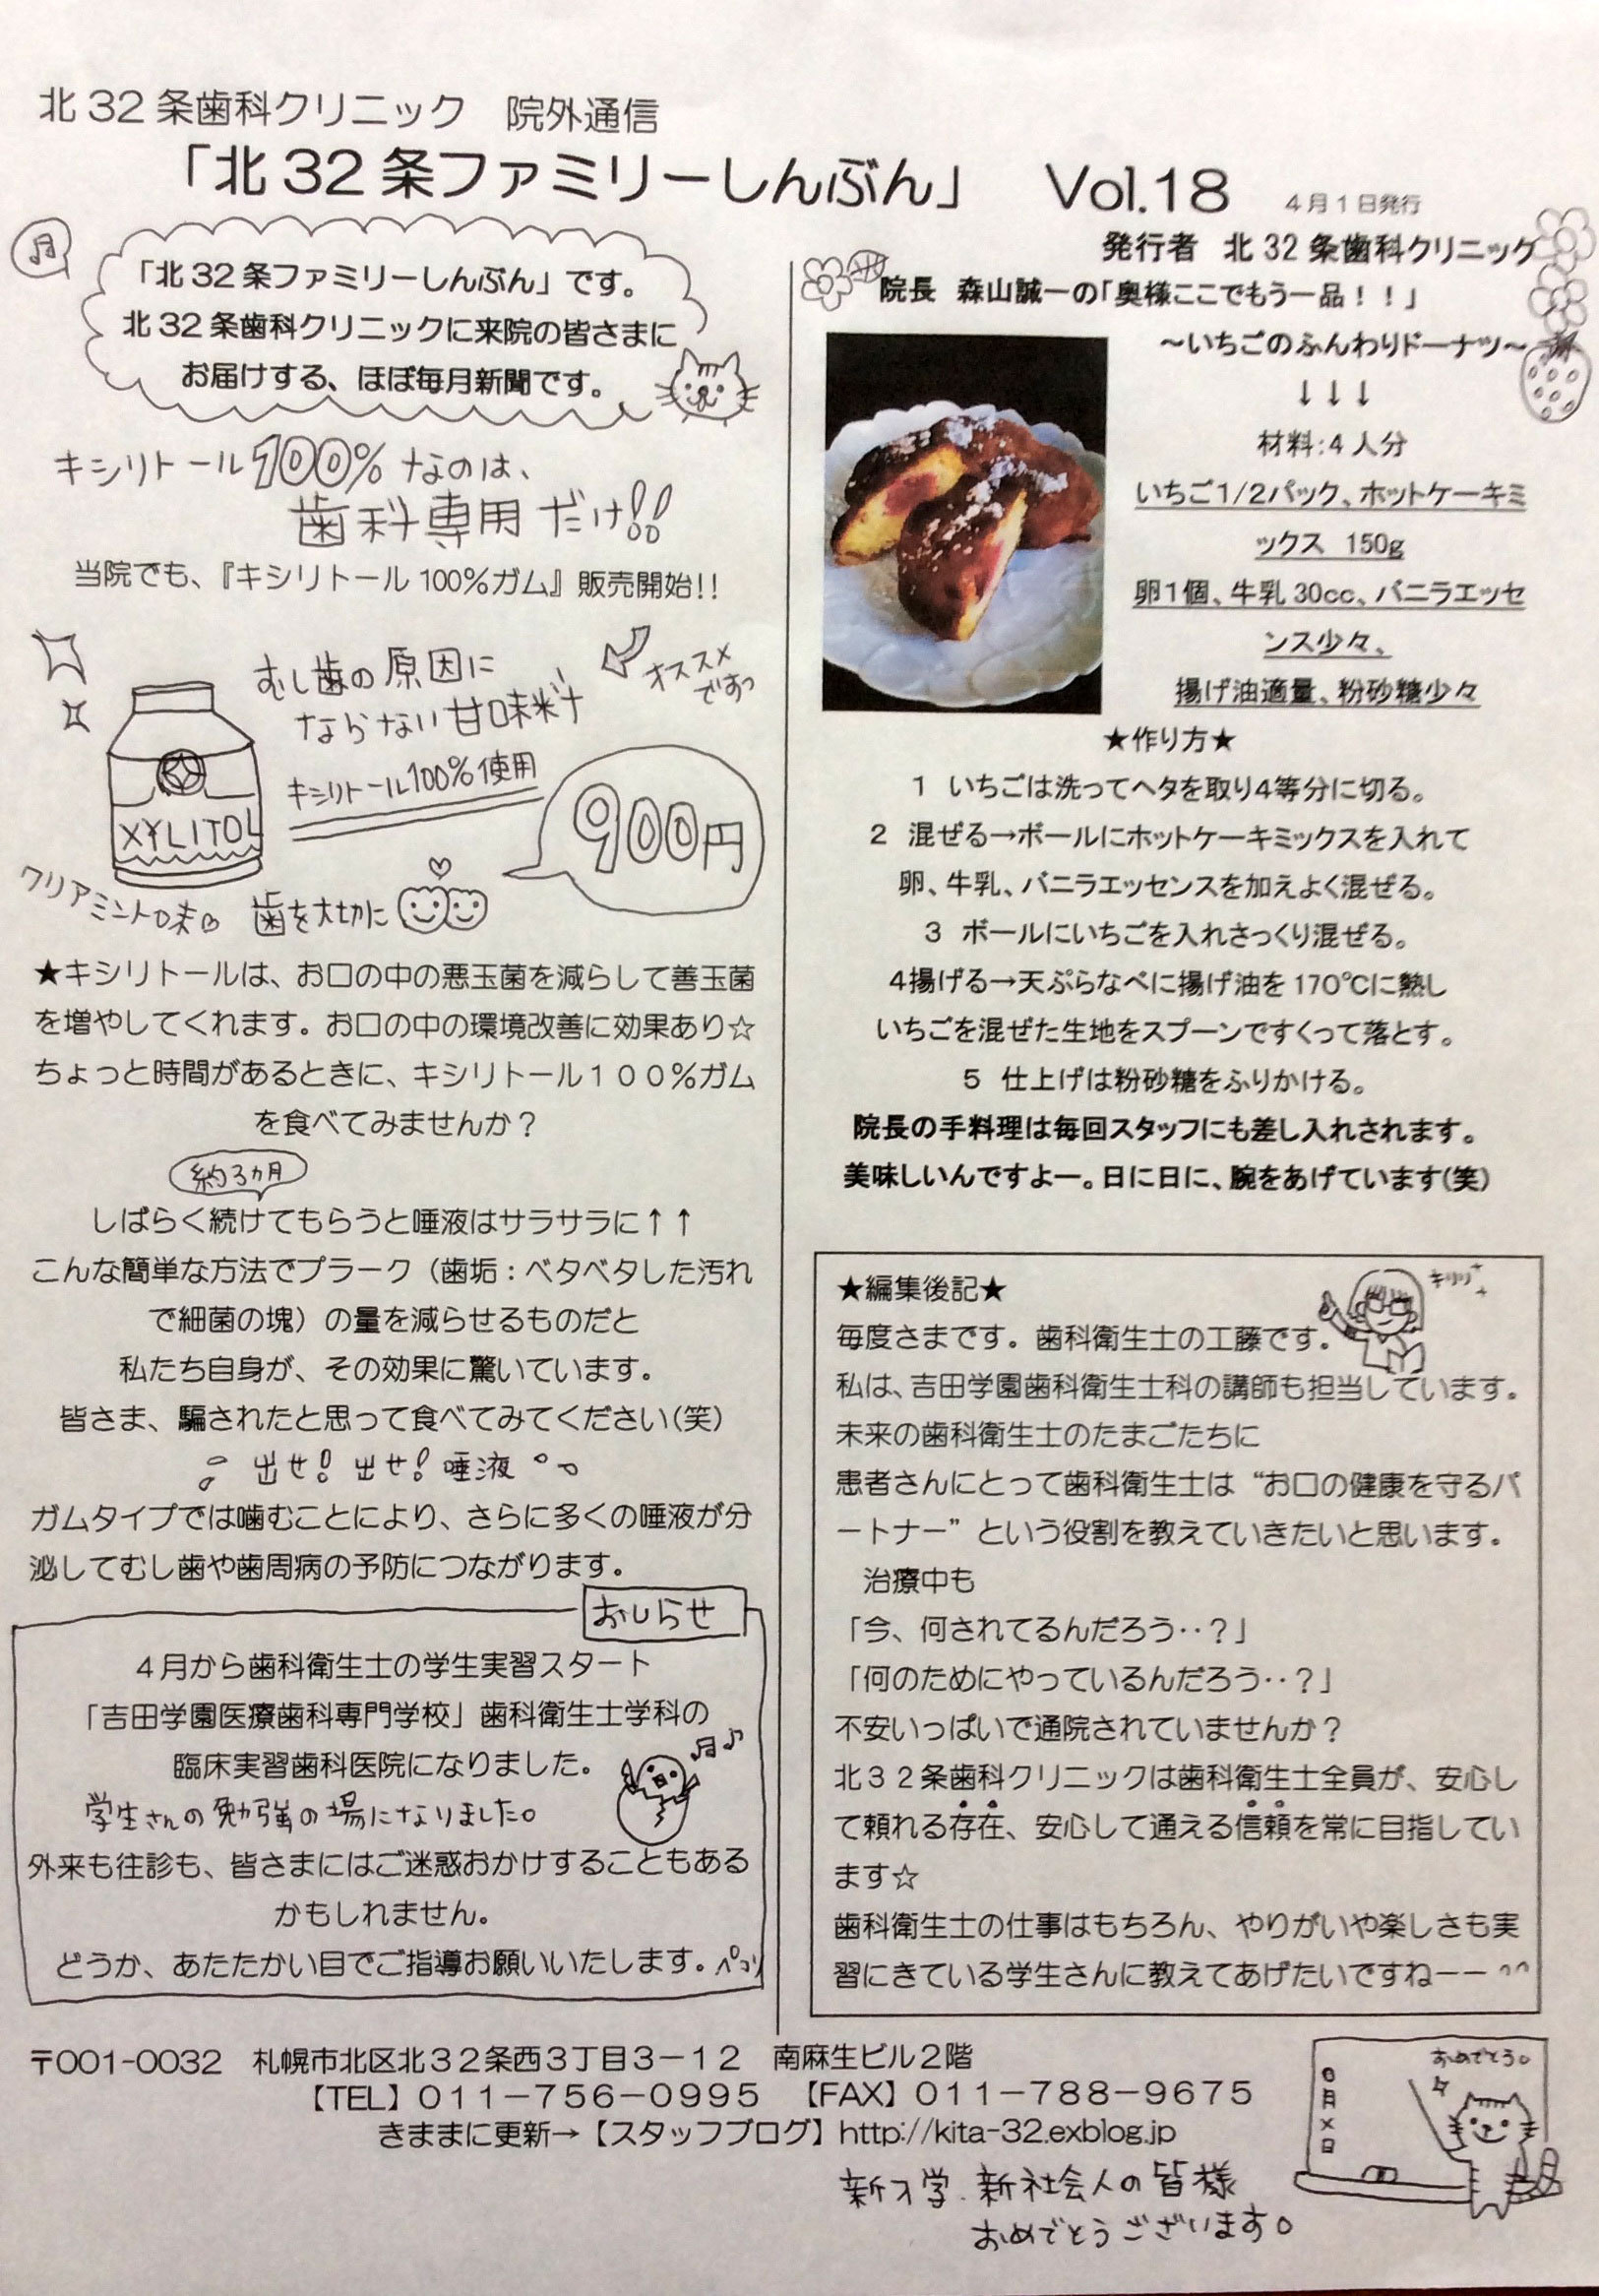 北32条歯科クリニック 院外通信
「北32条ファミリーしんぶん」 Vol.18 4月1日発行
発行者 北32条歯科クリニック
「北32条ファミリーしんぶん」です。
北32条歯科クリニックに来院の皆さまに
お届けする、ほぼ毎月新聞です。
キシリトール100%なのは、
歯科専用だけ!!
当院でも、『キシリトール100%ガム』販売開始!!
オススメ
ですっ
むし歯の原因に
ならない甘味料
キシリトール100%使用
900円
XYLITOL
クリアミント味
歯を大切に
★キシリトールは、お口の中の悪玉菌を減らして善玉菌
を増やしてくれます。お口の中の環境改善に効果あり☆
ちょっと時間があるときに、キシリトール100%ガム
を食べてみませんか?
約3ヵ月
しばらく続けてもらうと唾液はサラサラに↑↑
こんな簡単な方法でプラーク(歯垢:ベタベタした汚れ
で細菌の塊)の量を減らせるものだと
私たち自身が、その効果に驚いています。
皆さま、騙されたと思って食べてみてください(笑)
出せ!出せ!唾液
ガムタイプでは噛むことにより、さらに多くの唾液が分
泌してむし歯や歯周病の予防につながります。
おしらせ
4月から歯科衛生士の学生実習スタート
「吉田学園医療歯科専門学校」歯科衛生士学科の
臨床実習歯科医院になりました。
学生さんの勉強の場になりました。
外来も往診も、皆さまにはご迷惑おかけすることもある
かもしれません。
どうか、あたたかい目でご指導お願いいたします。ペコリ
院長 森山誠一の「奥様ここでもう一品!!」
~いちごのふんわりドーナツ~
↓↓↓
材料:4人分
いちご1/2パック、ホットケーキミ
ックス 150g
卵1個、牛乳30cc、バニラエッセ
ンス少々、
揚げ油適量、粉砂糖少々
★作り方★
1 いちごは洗ってヘタを取り4等分に切る。
2 混ぜる→ボールにホットケーキミックスを入れて
卵、牛乳、バニラエッセンスを加えよく混ぜる。
3 ボールにいちごを入れさっくり混ぜる。
4揚げる→天ぷらなべに揚げ油を170℃に熱し
いちごを混ぜた生地をスプーンですくって落とす。
5 仕上げは粉砂糖をふりかける。
院長の手料理は毎回スタッフにも差し入れされます。
美味しいんですよー。日に日に、腕をあげています(笑)
★編集後記★
キリリ
毎度さまです。歯科衛生士の工藤です。
私は、吉田学園歯科衛生士科の講師も担当しています。
未来の歯科衛生士のたまごたちに
患者さんにとって歯科衛生士は“お口の健康を守るパ
ートナー”という役割を教えていきたいと思います。
治療中も
「今、何されてるんだろう‥?」
「何のためにやっているんだろう‥?」
不安いっぱいで通院されていませんか?
北32条歯科クリニックは歯科衛生士全員が、安心し
て頼れる存在、安心して通える信頼を常に目指してい
ます☆
歯科衛生士の仕事はもちろん、やりがいや楽しさも実
習にきている学生さんに教えてあげたいですねーー^^
〒001-0032 札幌市北区北32条西3丁目3-12 南麻生ビル2階
【TEL】011-756-0995 【FAX】011-788-9675
きままに更新→【スタッフブログ】http://kita-32.exblog.jp
おめでとう。
○月×日
新入学.新社会人の皆様
おめでとうございます。